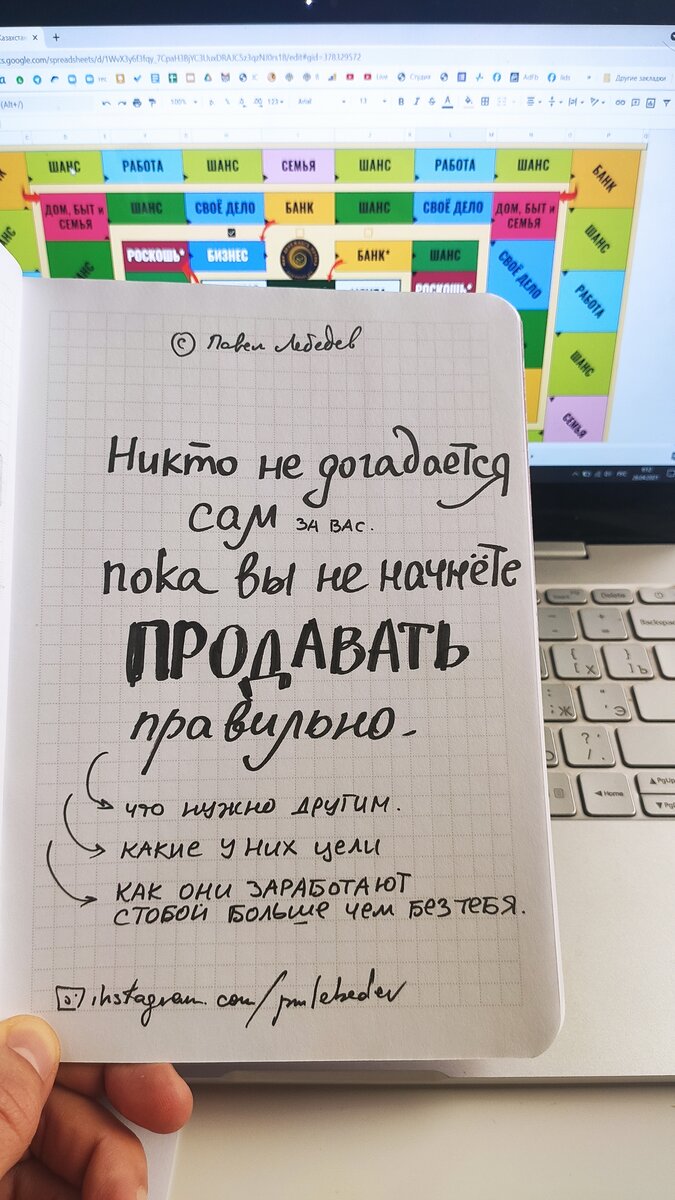 Казахстан
ts.google.com/spreadsheets/d/
Другие закладки
(Alt+/)
100%
123
Arial
ШАНС РАБОТА ШАНС СЕМЬЯ ШАНС РАБОТА ШАНС БАНК
ДОМ, БЫТ и СЕМЬЯ ШАНС СВОЁ ДЕЛО БАНК ШАНС СВОЁ ДЕЛО ДОМ, БЫТ и СЕМЬЯ
ШАНС
РОСКОШЬ* БИЗНЕС БАНК* ШАНС
РОСКОШЬ*
СВОЁ ДЕЛО
РАБОТА
ШАНС
СЕМЬЯ
© Павел Лебедев
Никто не догадается
сам за вас.
пока вы не начнёте
ПРОДАВАТЬ
правильно.
что нужно другим.
какие у них цели
как они заработают
стобой больше чем без тебя.
instagram.com/pmlebedev
Delete
Backspace
Х
Ъ
Ж
Э
Home
PgUp